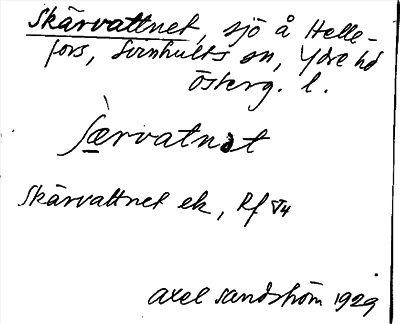 Skärvattnet, sjö å Helle-
fors, Svinhults sn, Ydre hd
Österg. l.
sæ̀rvatnət
Skärvattnet ek, Rf 54
Axel Sandström 1929